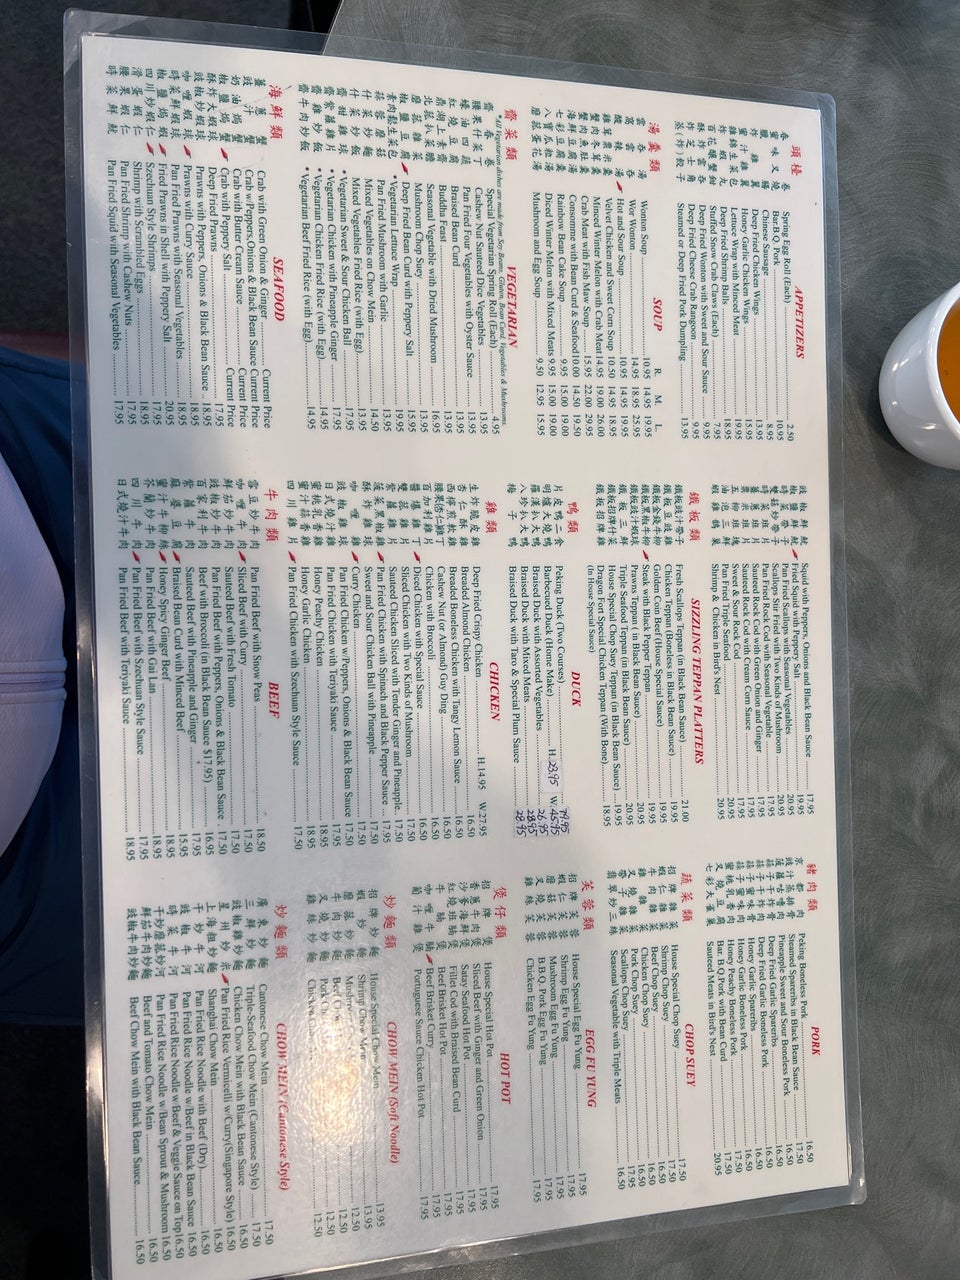 頭檯 APPETIZERS
春卷 Spring Egg Roll (Each) 2.50
蜜味叉燒 Bar.B.Q. Pork 10.95
臘腸 Chinese Sausage 8.95
炸雞翼 Deep Fried Chicken Wings 13.95
蜜汁雞翼 Honey Garlic Chicken Wings 15.95
雞錦生菜包 Lettuce Wrap with Minced Meat 19.95
炸蝦丸 Deep Fried Shrimp Balls 18.95
百花釀蟹鉗 Stuffed Snow Crab Claws (Each) 7.95
酥炸雲吞 Deep Fried Wonton with Sweet and Sour Sauce 9.95
炸芝士角 Deep Fried Cheese Crab Rangoon 9.95
蒸(炸)餃子 Steamed or Deep Fried Pork Dumpling 13.95
湯羹類 SOUP R. M. L.
雲吞湯 Wonton Soup 10.95 14.95 19.95
窩雲吞 Wor Wonton 14.95 18.95 25.95
酸辣湯 Hot and Sour Soup 10.95 14.95 19.95
雞茸粟米羹 Velvet Chicken and Sweet Corn Soup 10.50 14.95 18.95
蟹肉冬茸羹 Minced Winter Melon with Crab Meat 14.95 19.00 26.00
蟹肉魚肚羹 Crab Meat with Fish Maw Soup 15.95 22.00 29.95
海鮮豆腐羹 Consomme with Bean Curd & Seafood 10.00 14.50 19.50
七彩豆腐羹 Rainbow Bean Cake Soup 9.95 15.00 19.00
八珍瓜粒湯 Diced Winter Melon with Mixed Meats 9.95 15.00 19.00
磨菇蛋花湯 Mushroom and Egg Soup 9.50 12.95 15.95
齋菜類 VEGETARIAN
*All Vegetarian dishes are made from Soy Beans, Gluten, Bean Curd, Vegetables & Mushrooms
齋春卷 Special Vegetarian Spring Roll (Each) 4.95
腰果什菜丁 Cashew Nut Sauteed Dice Vegetables 13.95
蠔油四蔬 Pan Fried Four Vegetables with Oyster Sauce 13.95
紅燒豆腐 Braised Bean Curd 13.95
鼎湖上素齋 Buddha Feast 13.95
北菇扒菜膽 Seasonal Vegetable with Dried Mushroom 16.95
磨菇雜菜 Mushroom Chop Suey 13.95
椒鹽豆腐 Deep Fried Bean Curd with Peppery Salt 15.95
素肉鬆生菜包 *Vegetarian Lettuce Wrap 19.95
蒜蓉磨菇 Pan Fried Mushroom with Garlic 13.95
什菜炒麵 Mixed Vegetables on Chow Mein 14.50
什菜炒飯 Mixed Vegetables Fried Rice (with Egg) 13.95
齋甜雞球 *Vegetarian Sweet & Sour Chicken Ball 17.95
齋紫蘿雞片 *Vegetarian Chicken with Pineapple Ginger 17.95
齋雞炒飯 *Vegetarian Chicken Fried Rice (with Egg) 14.95
齋牛肉炒飯 *Vegetarian Beef Fried Rice (with Egg) 14.95
海鮮類 SEAFOOD
薑蔥蟹 Crab with Green Onion & Ginger Current Price
豉汁蟹 Crab w/Peppers, Onions & Black Bean Sauce Current Price
奶油焗蟹 Crab with Butter Cream Sauce Current Price
椒鹽焗蟹 Crab with Peppery Salt Current Price
酥炸大蝦 Deep Fried Prawns 17.95
豉椒炒蝦球 Prawns with Peppers, Onions & Black Bean Sauce 18.95
咖喱蝦球 Prawns with Curry Sauce 18.95
時菜鮮蝦球 Pan Fried Prawns with Seasonal Vegetables 18.95
椒鹽焗蝦 Fried Prawns in Shell with Peppery Salt 20.95
四川炒蝦仁 Szechuan Style Shrimps 17.95
滑蛋蝦仁 Shrimp with Scrambled Eggs 18.95
腰果蝦仁 Pan Fried Shrimp with Cashew Nuts 17.95
時菜鮮魷 Pan Fried Squid with Seasonal Vegetables 17.95
豉椒鮮魷 Squid with Peppers, Onions and Black Bean Sauce 17.95
椒鹽鮮魷 Fried Squid with Peppery Salt 19.95
時菜帶子 Pan Fried Scallops with Seasonal Vegetables 20.95
雙菇炒帶子 Scallops Stir Fried with Two Kinds of Mushroom 20.95
時菜班片 Pan Fried Rock Cod with Seasonal Vegetable 17.95
薑蔥班片 Sauteed Rock Cod with Green Onion and Ginger 17.95
粟米班片 Sauteed Rock Cod with Cream Corn Sauce 17.95
五柳班塊 Sweet & Sour Rock Cod 17.95
油泡三鮮 Pan Fried Triple Seafood 20.95
蝦雞鵲巢 Shrimp & Chicken in Bird's Nest 20.95
鐵板類 SIZZLING TEPPAN PLATTERS
鐵板豉汁帶子 Fresh Scallops Teppan (in Black Bean Sauce) 21.00
鐵板豆豉雞 Chicken Teppan (Boneless in Black Bean Sauce) 19.95
鐵板金錢牛柳 Golden Coin Beef (House Special Sauce) 19.95
鐵板黑椒牛柳 Steak with Black Pepper Teppan 20.95
鐵板豉汁蝦球 Prawns Teppan ( in Black Bean Sauce) 20.95
鐵板三鮮 Triple Seafood Teppan (in Black Bean Sauce) 20.95
鐵板招牌什菜 House Special Chop Suey Teppan (in Black Bean Sauce) 19.95
鐵板招牌雞 Dragon Fort Special Chicken Teppan (With Bone) 18.95
(In House Special Sauce)
鴨類 DUCK
片皮鴨兩食 Peking Duck (Two Courses) 79.95
明爐火燒鴨 Barbecued Duck (Home Make) H. 23.95 W. 45.95
羅漢扒大鴨 Braised Duck with Assorted Vegetables 26.95
八珍扒大鴨 Braised Duck with Mixed Meats 28.95
梅子鴨 Braised Duck with Taro & Special Plum Sauce 28.95
雞類 CHICKEN
生炸脆皮雞 Deep Fried Crispy Chicken H.14.95 W.27.95
杏仁酥雞 Breaded Almond Chicken 16.50
西檸煎軟雞 Breaded Boneless Chicken with Tangy Lemon Sauce 16.50
腰果(杏仁)雞丁 Cashew Nut (or Almond) Guy Ding 16.50
百加利雞片 Chicken with Broccoli 16.50
醬爆雞丁 Diced Chicken with Special Sauce 16.50
雙菇雞片 Sliced Chicken with Two Kinds of Mushroom 17.50
紫蘿雞片 Sauteed Chicken Sliced with Tender Ginger and Pineapple 17.50
菠菜黑椒雞 Pan Fried Chicken with Spinach and Black Pepper Sauce 17.95
酥炸雞球 Sweet and Sour Chicken Ball with Pineapple 17.50
咖喱雞 Curry Chicken 17.50
豉椒雞 Pan Fried Chicken w/Peppers, Onions & Black Bean Sauce 17.50
日式燒汁雞 Pan Fried Chicken with Teriyaki Sauce 17.95
蜜桃乳香雞 Honey Peachy Chicken 18.95
蜜汁蒜香雞 Honey Garlic Chicken 18.95
四川雞片 Pan Fried Chicken with Szechuan Style Sauce 17.50
牛肉類 BEEF
雪豆炒牛肉 Pan Fried Beef with Snow Peas 18.50
咖喱牛肉 Sliced Beef with Curry 17.50
鮮茄炒牛肉 Sauteed Beef with Fresh Tomato 17.50
豉椒炒牛肉 Pan Fried Beef with Peppers, Onions & Black Bean Sauce 17.50
百家利牛肉 Beef with Broccoli (in Black Bean Sauce $17.95) 16.95
紫蘿牛肉 Sauteed Beef with Pineapple and Ginger 17.95
麻婆豆腐 Braised Bean Curd with Minced Beef 15.95
蜜汁牛柳絲 Honey Spicy Ginger Beef 18.95
芥蘭炒牛肉 Pan Fried Beef with Gai Lan 18.95
四川牛肉 Pan Fried Beef with Szechuan Style Sauce 17.95
日式燒汁牛肉 Pan Fried Beef with Teriyaki Sauce 18.95
豬肉類 PORK
京都肉 Peking Boneless Pork 16.50
豉汁蒸排骨 Steamed Spareribs in Black Bean Sauce 17.50
菠蘿咕嚕肉 Pineapple Sweet and Sour Boneless Pork 16.50
蒜子干炸骨 Deep Fried Garlic Spareribs 16.50
蒜子干炸肉 Deep Fried Garlic Boneless Pork 16.50
蒜子蜜味骨 Honey Garlic Spareribs 16.50
蒜子蜜味肉 Honey Garlic Boneless Pork 16.50
蜜桃乳香肉 Honey Peachy Boneless Pork 17.50
叉燒豆腐 Bar. B.Q. Pork with Bean Curd 17.50
七彩大雀巢 Sauteed Meats in Bird's Nest 20.95
蔬菜類 CHOP SUEY
招牌雜菜 House Special Chop Suey 17.50
蝦仁雜菜 Shrimp Chop Suey 17.50
牛肉雜菜 Beef Chop Suey 16.50
雞雜菜 Chicken Chop Suey 16.50
叉燒雜菜 Pork Chop Suey 16.50
帶子雜菜 Scallops Chop Suey 17.95
翡翠炒三絲 Seasonal Vegetable with Triple Meats 16.50
芙蓉類 EGG FU YUNG
招牌芙蓉 House Special Egg Fu Yung 17.95
蝦芙蓉 Shrimp Egg Fu Yung 17.95
磨菇芙蓉 Mushroom Egg Fu Yung 17.95
叉燒芙蓉 B.B.Q. Pork Egg Fu Yung 17.95
雞絲芙蓉 Chicken Egg Fu Yung 17.95
煲仔類 HOT POT
招牌煲 House Special Hot Pot 17.95
香蔥牛肉煲 Sliced Beef with Ginger and Green Onion 17.95
沙爹海鮮煲 Satay Seafood Hot Pot 17.95
紅燒班腩煲 Fillet Cod with Braised Bean Curd 17.95
牛腩煲 Beef Brisket Hot Pot 17.95
咖喱牛腩 Beef Brisket Curry 17.95
葡汁雞煲 Portuguese Sauce Chicken Hot Pot 17.95
炒麵類 CHOW MEIN (Soft Noodle)
招牌炒麵 House Special Chow Mein 13.95
蝦炒麵 Shrimp Chow Mein 13.95
磨菇炒麵 Mushroom Chow Mein 12.50
牛肉炒麵 Beef Chow 12.50
叉燒炒麵 Pork Ch 12.50
雞絲炒麵 Chicken 12.50
炒麵類 CHOW MEIN (Cantonese Style)
廣東炒麵 Cantonese Chow Mein 17.50
三鮮炒麵 Triple-Seafood Chow Mein (Cantonese Style) 17.50
豉椒雞炒麵 Chicken Chow Mein with Black Bean Sauce 16.50
星洲炒米 Pan Fried Rice Vermicelli w/Curry(Singapore Style) 16.50
上海粗炒麵 Shanghai Chow Mein 16.50
干炒牛河 Pan Fried Rice Noodle with Beef (Dry) 16.50
豉椒牛河 Pan Fried Rice Noodle w/Beef in Black Bean Sauce 16.50
時菜牛河 Pan Fried Rice Noodle w/Beef & Veggie Sauce on Top 16.50
干炒磨菇炒河 Pan Fried Rice Noodle w/Bean Sprout & Mushroom 16.50
鮮茄牛肉炒麵 Beef and Tomato Chow Mein 16.50
豉椒牛肉炒麵 Beef Chow Mein with Black Bean Sauce 16.50